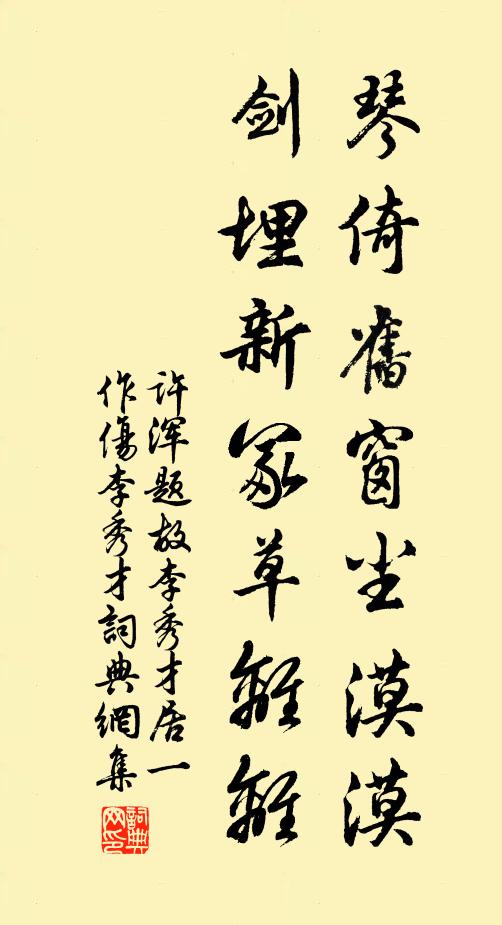 琴倚舊窗尘漠漠
剑埋新冢草離離
许浑题故李秀才居一
作傷李秀才詞典網集
詞典网印